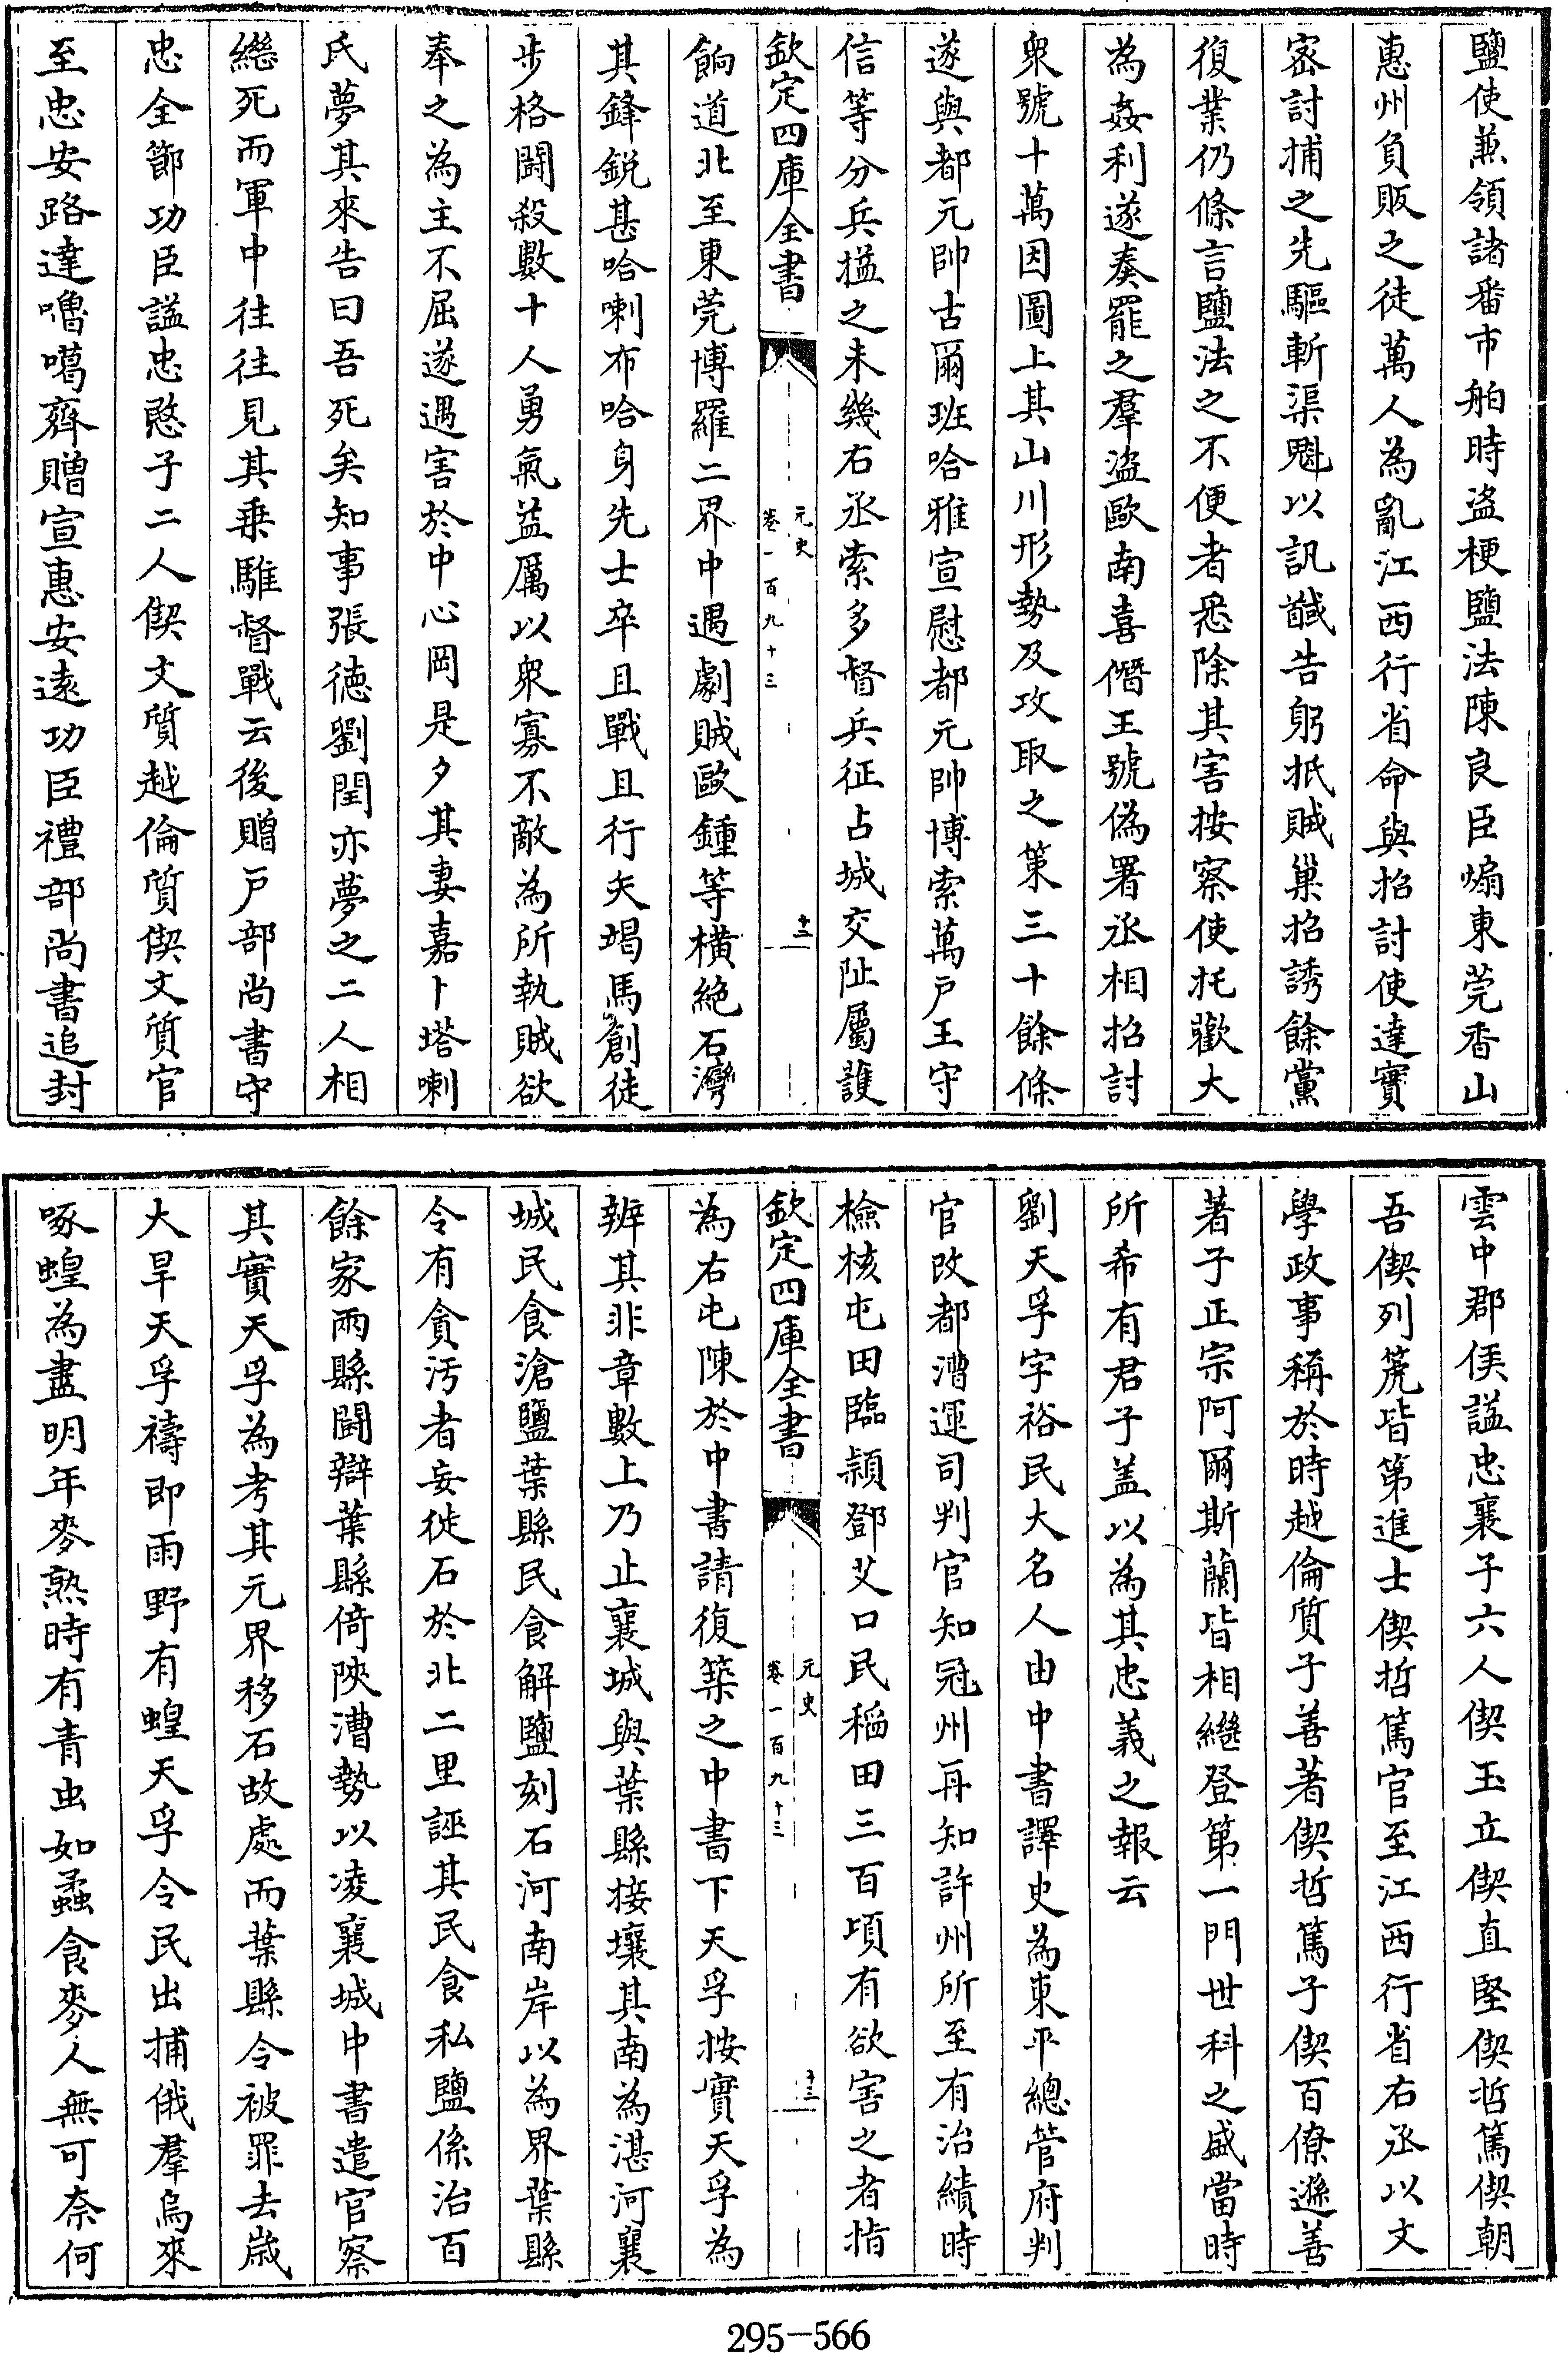 鹽使兼領諸番市舶時盜梗鹽法陳良臣煽東莞香山
惠州負販之徒萬人為亂江西行省命與招討使達實
密討捕之先驅斬渠魁以訊馘告躬抵賊巢招誘餘黨
復業仍條言鹽法之不便者悉除其害按察使托歡大
為姦利遂奏罷之羣盜歐南喜僭王號偽署丞相招討
衆號十萬因圖上其山川形勢及攻取之策三十餘條
遂與都元帥古爾班哈雅宣慰都元帥博索萬戶王守
信等分兵搤之未幾右丞索多督兵征占城交阯屬護
欽定四庫全書
元史
卷一百九十三
十二
餉道北至東莞博羅二界中遇劇賊歐鍾等橫絶石灣
其鋒鋭甚哈喇布哈身先士卒且戰且行矢竭馬創徒
步格鬪殺數十人勇氣益厲以衆寡不敵為所執賊欲
奉之為主不屈遂遇害於中心岡是夕其妻嘉卜塔喇
氏夢其來告曰吾死矣知事張德劉閏亦夢之二人相
繼死而軍中往往見其乗騅督戰云後贈戶部尚書守
忠全節功臣諡忠愍子二人偰文質越倫質偰文質官
至忠安路達嚕噶齊贈宣惠安遠功臣禮部尚書追封
雲中郡侯諡忠襄子六人偰玉立偰直堅偰哲篤偰朝
吾偰列箎皆第進士偰哲篤官至江西行省右丞以文
學政事稱於時越倫質子善著偰哲篤子偰百僚遜善
著子正宗阿爾斯蘭皆相繼登第一門世科之盛當時
所希有君子盖以為其忠義之報云
劉天孚字裕民大名人由中書譯史為東平總管府判
官改都漕運司判官知冠州再知許州所至有治績時
檢核屯田臨潁鄧艾口民稻田三百頃有欲害之者指
欽定四庫全書
元史
卷一百九十三
十三
為右屯陳於中書請復築之中書下天孚按實天孚為
辨其非章數上乃止襄城與葉縣接壤其南為湛河襄
城民食滄鹽葉縣民食解鹽刻石河南岸以為界葉縣
令有貪汚者妄徙石於北二里誣其民食私鹽係治百
餘家兩縣鬪辯葉縣倚陝漕勢以凌襄城中書遣官察
其實天孚為考其元界移石故處而葉縣令被罪去歲
大旱天孚禱即雨野有蝗天孚令民出捕俄羣烏來
啄蝗為盡明年麥熟時有青虫如蟊食麥人無可奈何
295-566